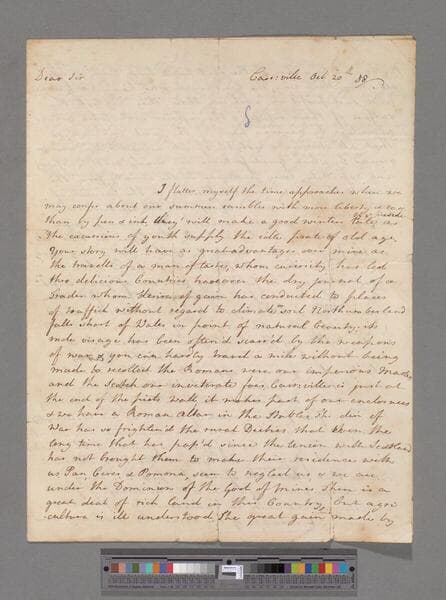 Dear Sir
Carr:ville Oct 20th 58
I flatter myself the time approaches when we
may confer about our summer rambles with more liberty & ease
than by pen & ink they will make a good winter Tale
the excursions of youth supply the side of old age.
Your story will have as great advantages over mine as
the travells of a man of taste, whom curiosity has led
thro delicious Countries has over the dry journal of a
trader whom desire of gain has conducted to places
of traffick without regard to climate or soil Northumberland
falls short of Wales in point of natural beauty. its
rude visage has been often scarr'd by the weapons
of war & you can hardly travel a mile without being
made to recollect the Romans were our imperious Masters
and the Scotch our inveterate foes. Carrville is just at
the end of the picts wall it makes part of our enclosures
& we have a Roman Altar in the Stables. The din of
War has so frighten'd the rural Deities that even the
long time that has pass'd since the union with Scotland
has not brought them to make their residence with
us Pan Ceres & Pomona seem to neglect us & we are
under the Dominion of the God of mines. There is a
great deal of rich land in this Country, but agri
culture is ill understood. The great gain made by